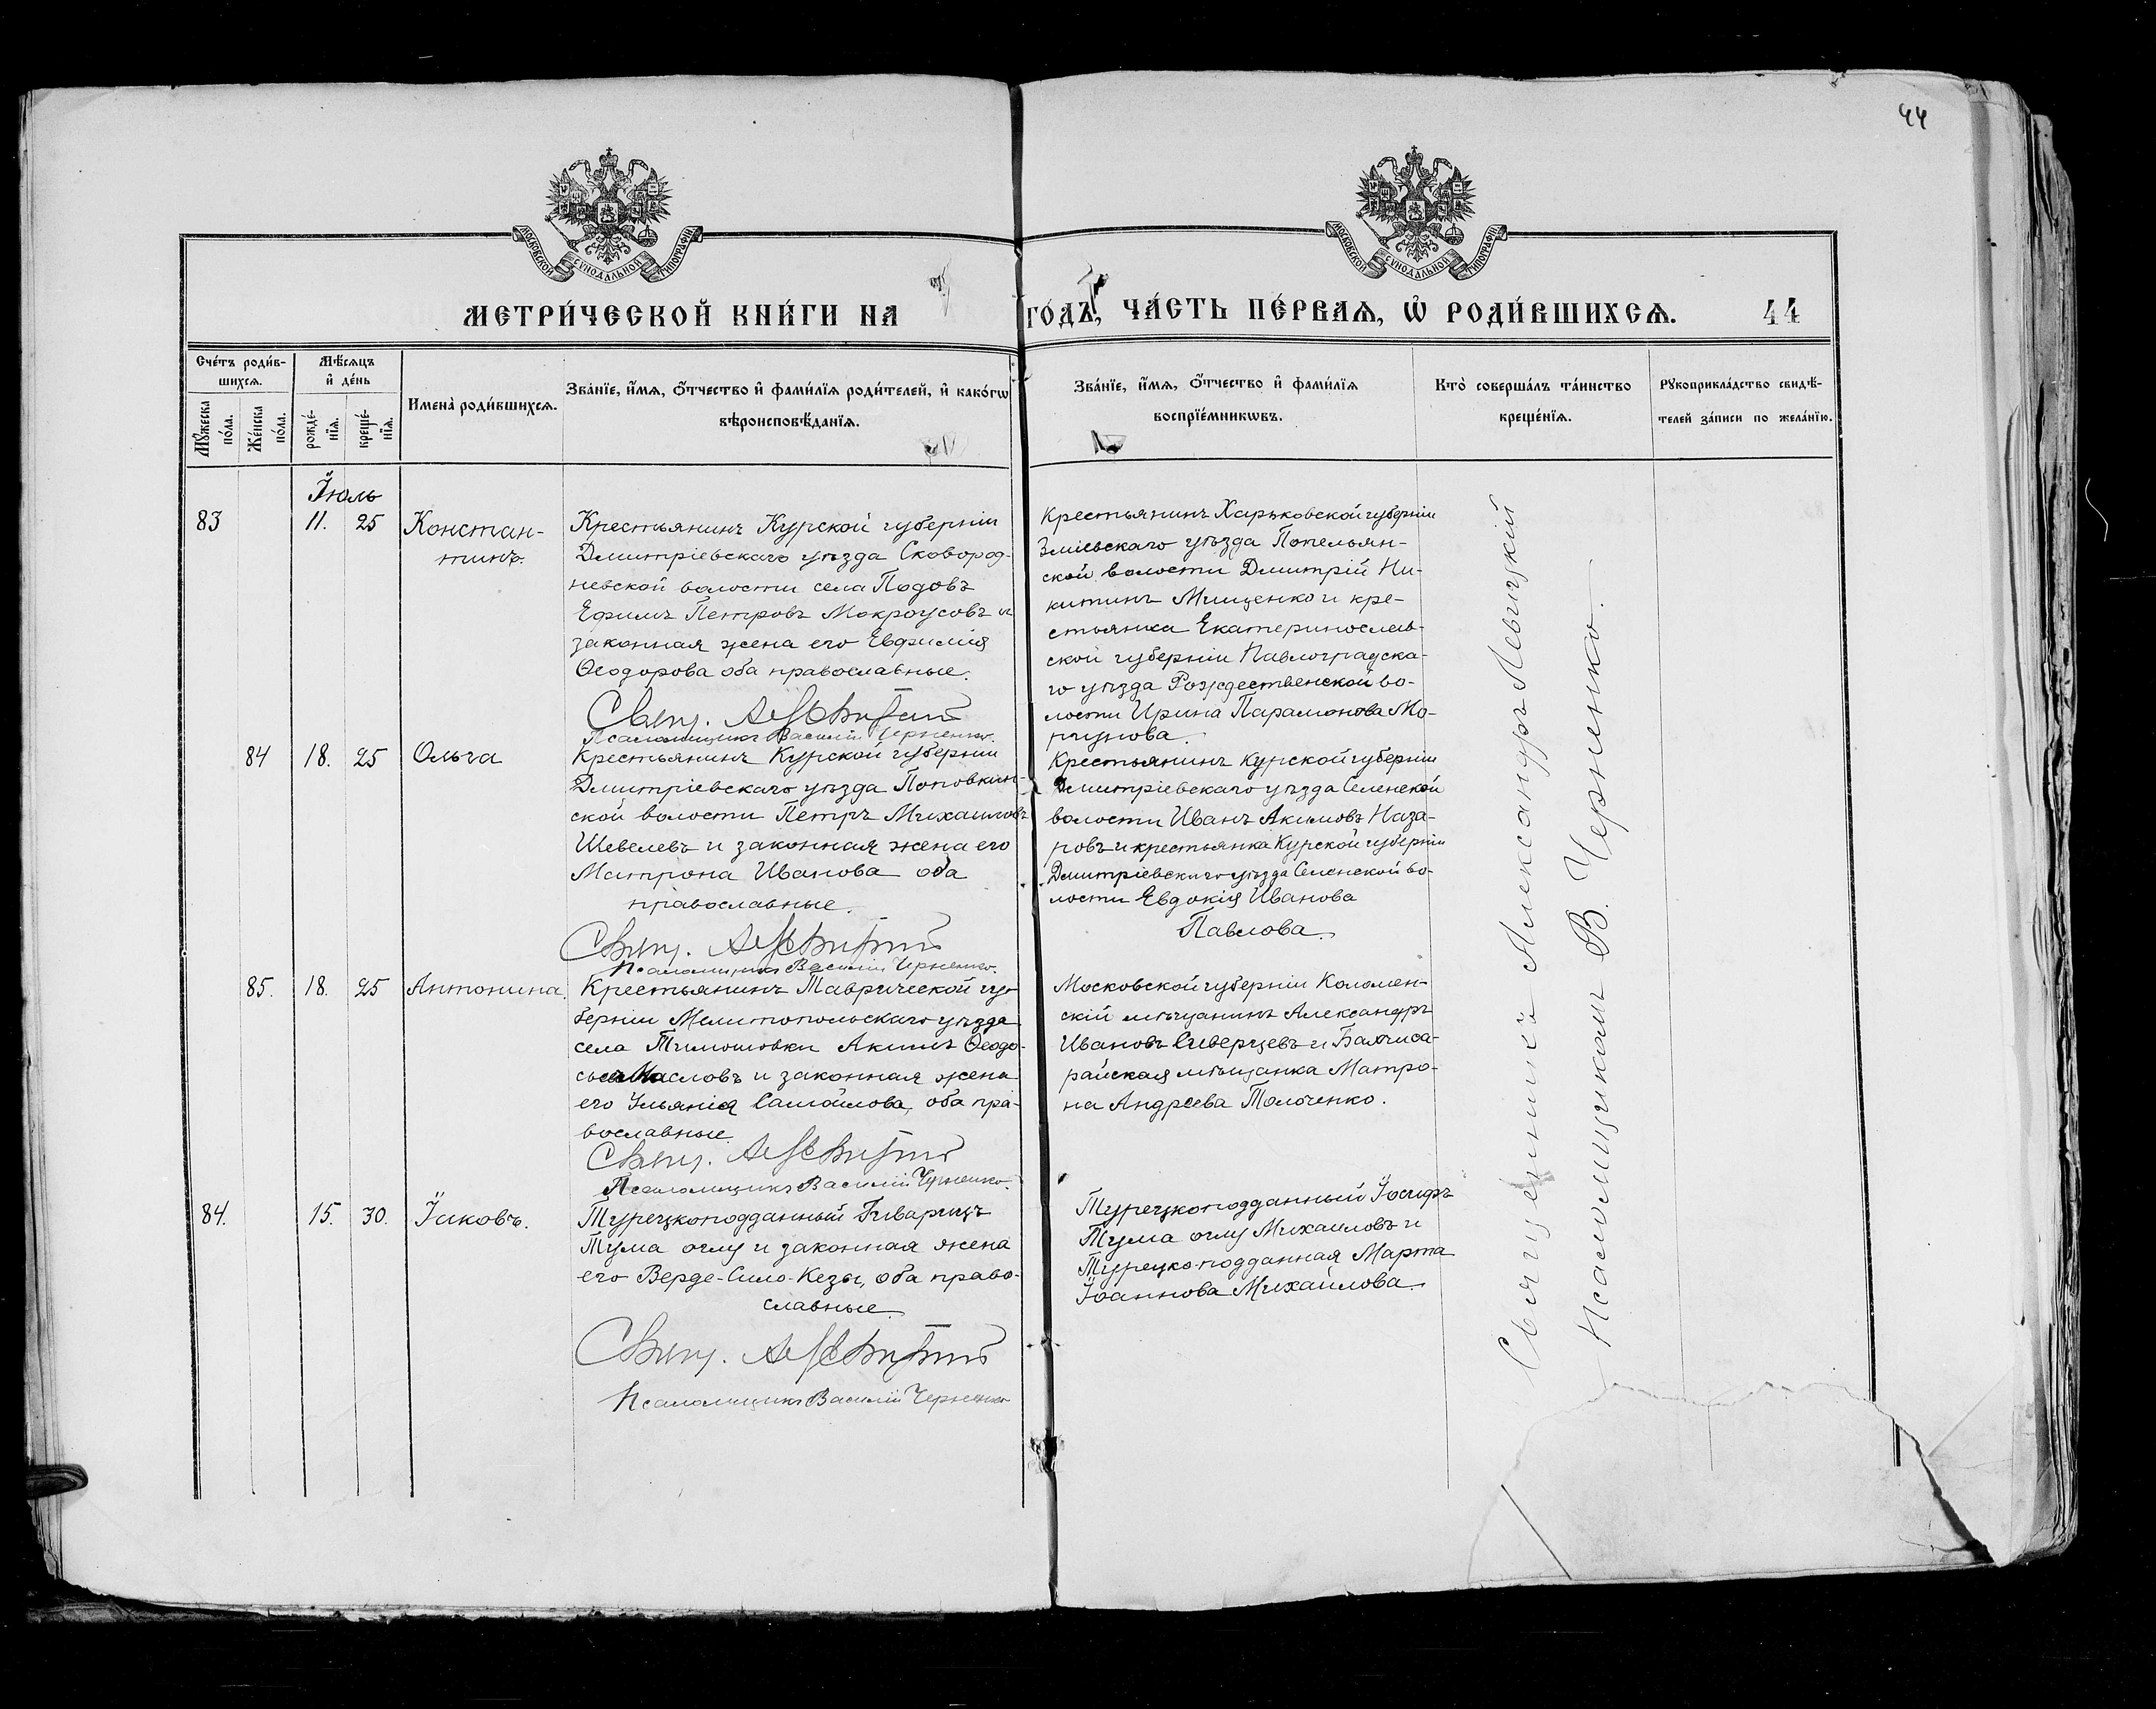 44
МОСКОВСКОЙ СУНОДАЛЬНОЙ ТИПОГРАФІИ
МОСКОВСКОЙ СУНОДАЛЬНОЙ ТИПОГРАФІИ
МЕТРИ́ЧЕСКОЙ КНИ́ГИ НА
ГО́ДЪ, ЧА́СТЬ ПЕ́РВАѦ, Ѡ҆ РОДИ́ВШИХСѦ.
44
Сче́тъ роди́в-
шихсѧ.
Мѣ́сѧцъ
и҆ де́нь
Мꙋ́жеска
по́ла.
Же́нска
по́ла.
рожде́-
нїѧ.
креще́-
нїѧ.
Имена̀ роди́вшихсѧ.
Зва́нїе, и҆́мѧ, ѻ҆́тчество и҆ фами́лїѧ роди́телей, и҆ како́гѡ
вѣроисповѣ́данїѧ.
Зва́нїе, и҆́мѧ, ѻ҆́тчество и҆ фами́лїѧ
воспрїе́мникѡвъ.
Кто̀ соверша́лъ та́инство
креще́нїѧ.
Рꙋкоприкла́дство свидѣ́-
телей за́писи по жела́нїю.
Іюль
83
11. 25
Констан-
тинъ.
Крестьянинъ Курской губерніи
Дмитріевскаго уѣзда Сковород-
невской волости села Подовъ
Ефимъ Петровъ Мокроусовъ и
законная жена его Евфимія
Ѳеодорова оба православные.
Свящ. А. Левитскій
Псаломщикъ Василій Черненко.
Крестьянинъ Харьковской губерніи
Зміевскаго уѣзда Попельян-
ской волости Дмитрій Ни-
китинъ Мищенко и кре-
стьянка Екатеринослав-
ской губерніи Павлоградска-
го уѣзда Рождественской во-
лости Ирина Парамонова Мо-
84
18. 25
Ольга
Крестьянинъ Курской губерніи
Дмитріевскаго уѣзда Поповкин-
ской волости Петръ Михаиловъ
Шевелевъ и законная жена его
Матрона Иванова оба
православные.
Свящ. А. Левитскій
Псаломщикъ Василій Черненко.
Крестьянинъ Курской губерніи
Дмитріевскаго уѣзда Селенской
волости Иванъ Акимовъ Наза-
ровъ и крестьянка Курской губерніи
Дмитріевскаго уѣзда Селенской во-
лости Евдокія Иванова
Павлова.
85.
18. 25
Антонина.
Крестьянинъ Таврической гу-
берніи Мелитопольскаго уѣзда
села Тимошовки Акимъ Ѳеодо-
Масловъ и законная жена
его Ульянія Самойлова, оба пра-
вославные.
Свящ. А. Левитскій
Псаломщикъ Василій Черненко.
Московской губерніи Коломен-
скій мѣщанинъ Александръ
Ивановъ Сиверцевъ и Бахчиса-
райская мѣщанка Матро-
на Андреева Толоченко.
84.
15. 30.
Іаковъ.
Турецкоподданный
Тума оглу и законная жена
его Верде-Сило-Кезы, оба право-
славные
Свящ. А. Левитскій
Псаломщикъ Василій Черненко
Турецкоподданный Іосифъ
Тума оглу Михаиловъ и
Турецко-подданная Марта
Іоаннова Михайлова.
Священникъ Александръ Левицкій
Псаломщикомъ В. Черненко.